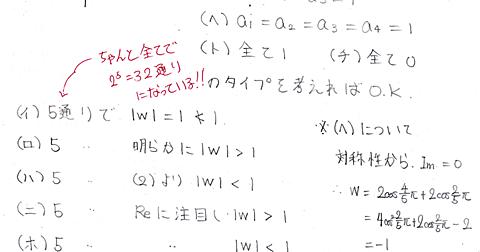 (ヘ) a₁ = a₂ = a₃ = a₄ = 1
(ト) 全て1 (チ) 全て0
ちゃんと全てで
2⁵=32通り
になっている!!
のタイプを考えれば O.K.
(イ) 5通りで |w| = 1
(ロ) 5 〃 明らかに |w| > 1
(ハ) 5 〃 (2)より |w| < 1
(ニ) 5 〃 Reに注目し |w| > 1
(ホ) 5 〃 〃 |w| < 1
※(ヘ)について
対称性から. Im = 0
∴ W = 2cos4/5π+2cos2/5π
= 4cos²2/5π+2cos2/5π-2
= -1